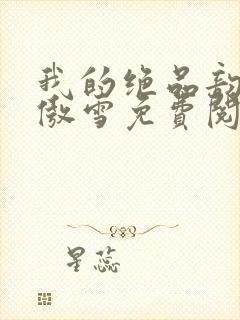 我的绝品
傲雪免费阅
星蕊